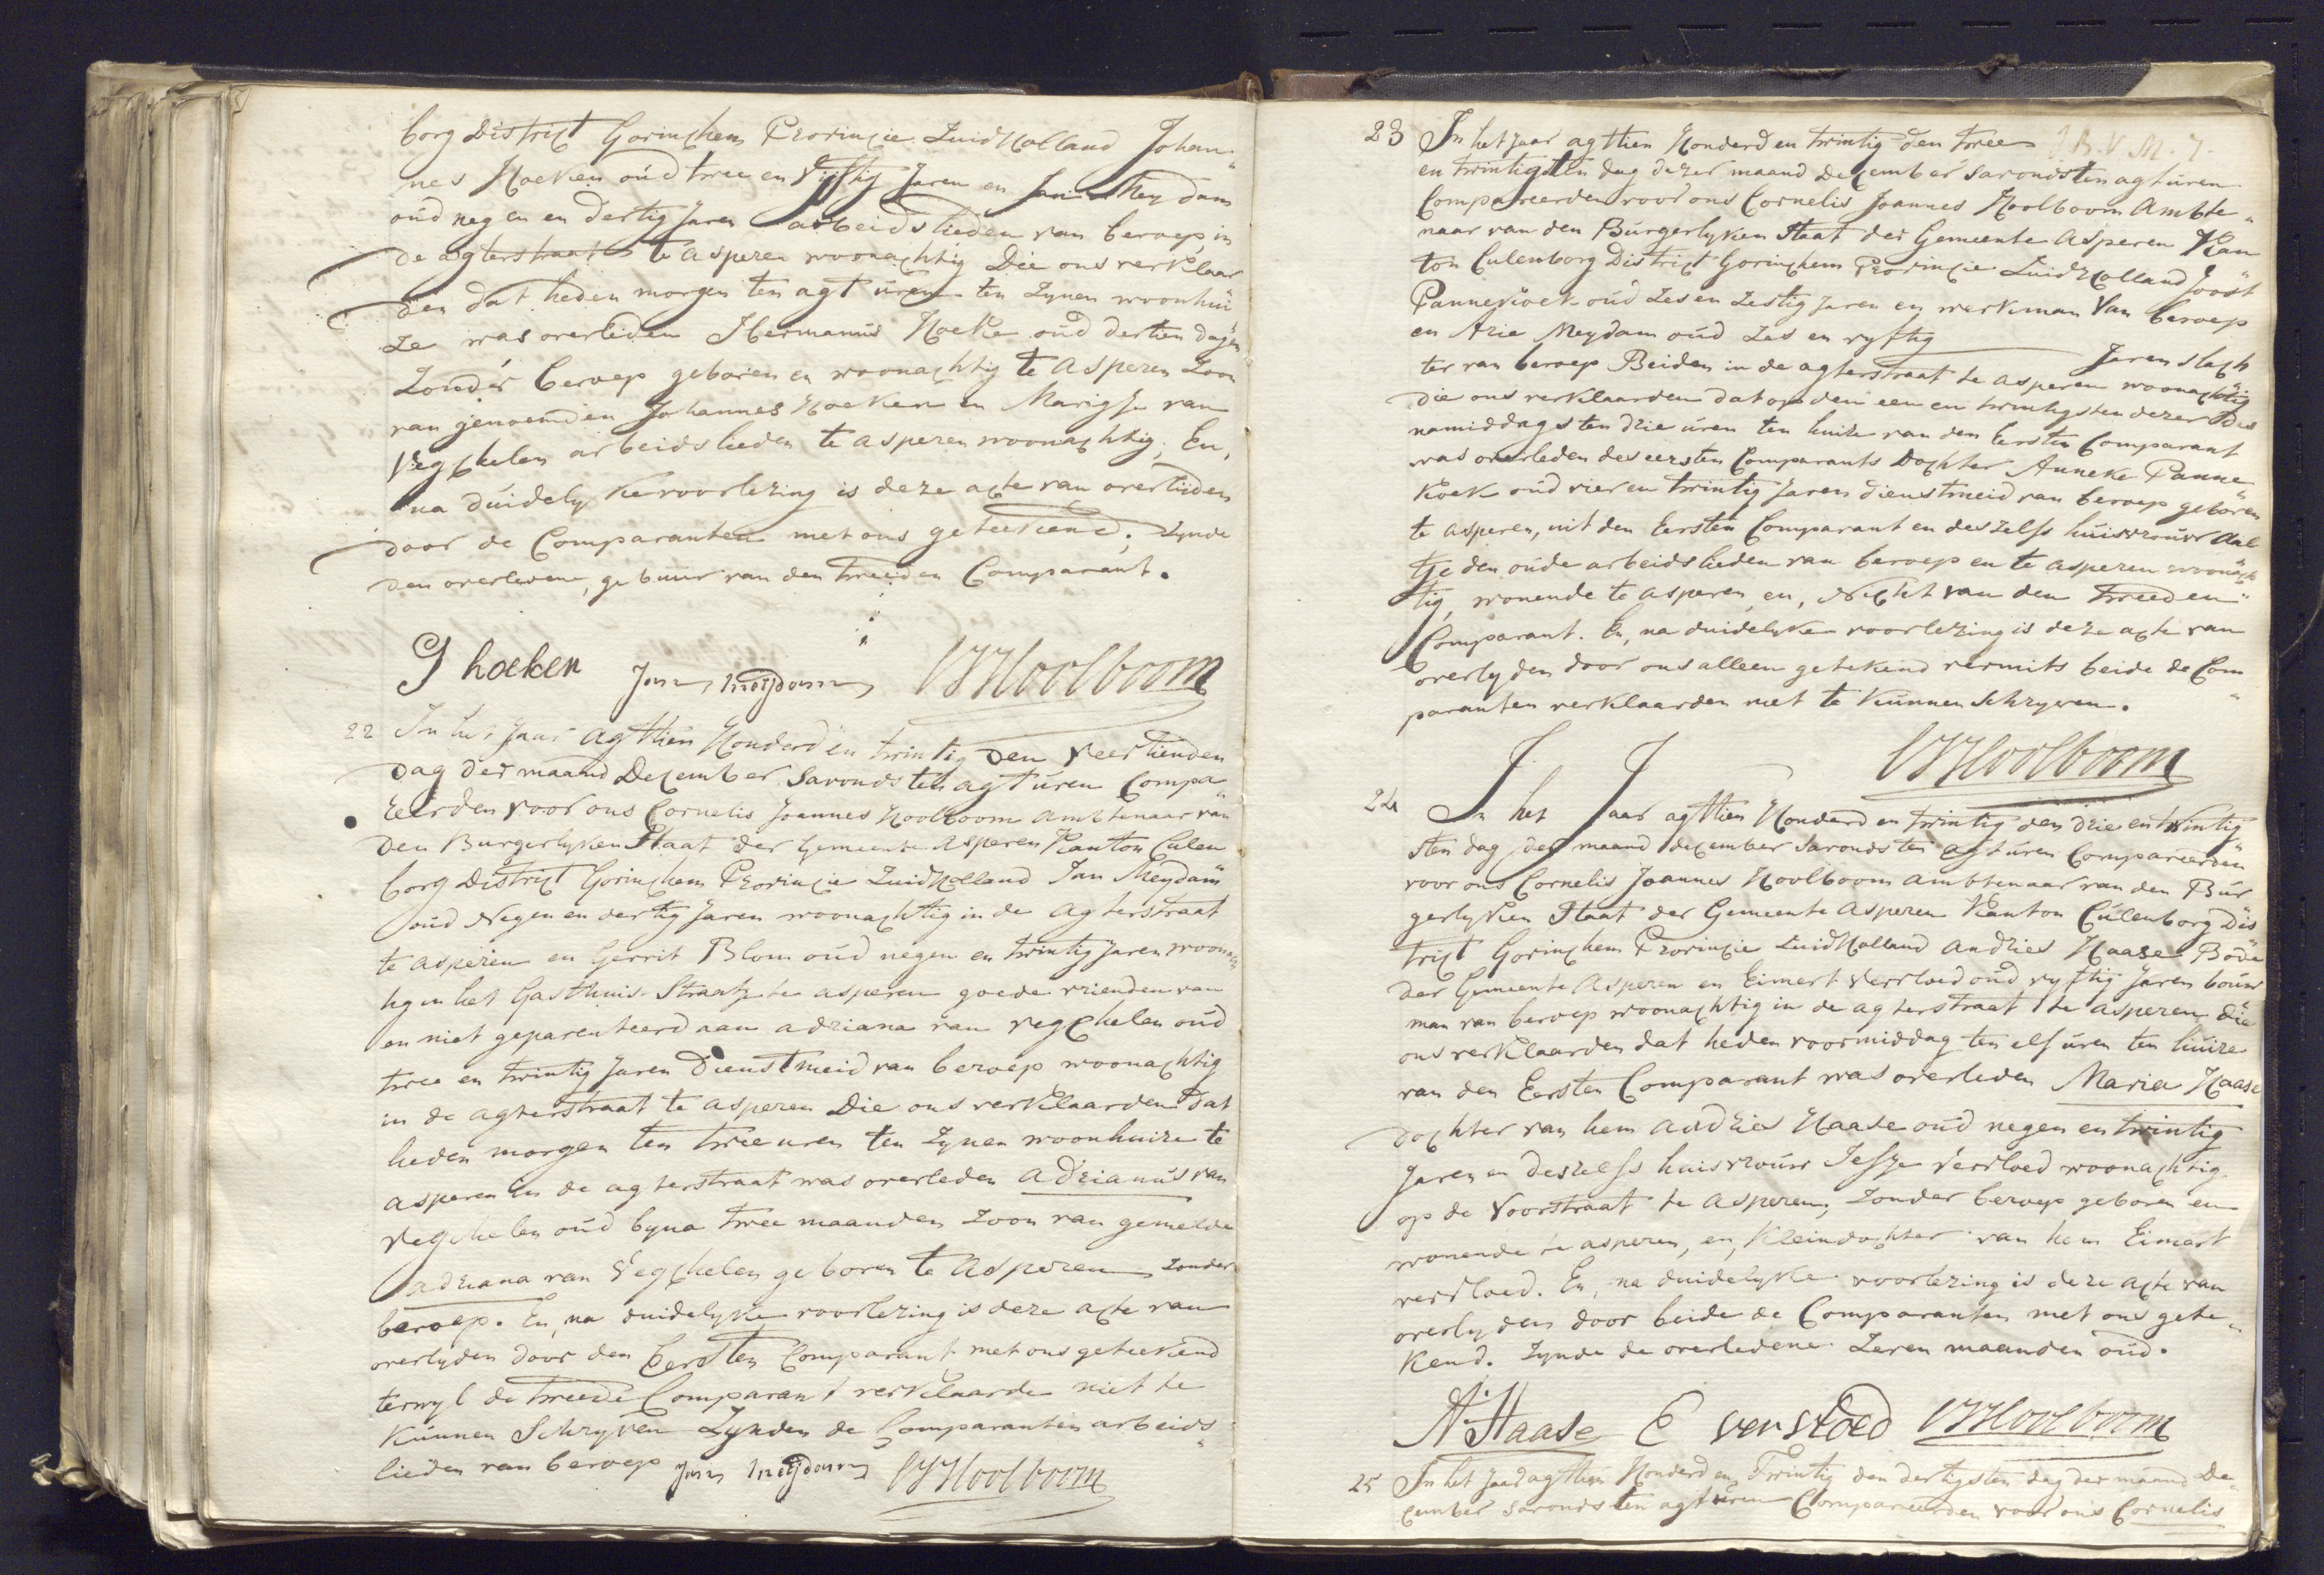 borg District Gorinchem Provincie Zuid Holland Johan„
nes Hoeken oud twee en vyftig Jaren en Jan Meydam
oud negen en dertig Jaren arbeidslieden van beroep in
de agterstraat te Asperen woonachtig Die ons verklaar
den dat heden morgen ten agt uren ten Zynen woonhui
ze was overleden Hermanus Hoeke oud dertien dagen
Zonder beroep geboren en woonachtig te Asperen Zoon
van genoemden Johannes Hoeken en Marigje van
Vegchelen arbeidslieden te asperen woonachtig; En,
na duidelyke voorlezing is deze acte van overlijden
door de Comparanten met ons geteekend; Zynde
den overledene, gebuur van den tweeden Comparant.
J hoeken Jan meijdam CJ Hoolboom
22 In het Jaar agttien Honderd en twintig den Veertienden
dag der maand December savonds ten agt uren Compa„
reerden voor ons Cornelis Joannes Hoolboom ambtenaar van
den Burgerlyken Staat der Gemeente Asperen Kanton Culen
borg District Gorinchem Provincie Zuid Holland Jan Meydam
oud Negen en dertig Jaren woonachtig in de agterstraat
te asperen en Gerrit Blom oud negen en twintig Jaren woonach
tig in het Gasthuis-Straatje te asperen goede vrienden van
en niet geparenteerd aan adriana van vegchelen oud
twee en twintig Jaren Dienstmeid van beroep woonachtig
in de agterstraat te asperen Die ons verklaarden dat
heden morgen ten twee uren ten Zynen woonhuize te
asperen in de agterstraat was overleden adrianus van
vegchelen oud byna twee maanden Zoon van gemelde
adriana van Vegchelen geboren te Asperen Zonder
beroep. En, na duidelyke voorlezing is deze acte van
overlyden door den Eersten Comparant met ons geteekend
terwyl de tweede Comparant verklaarde niet te
kunnen Schryven Zynden de Comparanten arbeids„
lieden van beroep Jan meijdam CJ Hoolboom
23 In het Jaar agttien Honderd en twintig den twee
en twintigsten dag dezer maand December savonds ten agt uren
Compareerden voor ons Cornelis Joannes Hoolboom Ambte„
naar van den Burgerlyken Staat der Gemeente Asperen Kan
ton Culenborg District Gorinchem Provincie Zuid Holland Joost
Pannekoek oud Zes en Zestig Jaren en werkman Van beroep
en Arie Meydam oud Zes en vyftig Jaren slach
ter van beroep Beiden in de agterstraat te asperen woonachtig
die ons verklaarden dat op den een en twintigsten dezer des
namiddags ten drie uren ten huize van den Eersten Comparant
was overleden des eersten Comparants Dochter Anneke Panne
koek oud vier en twintig Jaren dienstmeid van beroep geboren
te asperen, uit den Eersten Comparant en deszelfs huisvrouw Aal
tje den oude arbeidslieden van beroep en te asperen woonach
tig, wonende te asperen, en, Nicht van den tweeden„
Comparant. En, na duidelyke voorlezing is deze acte van
overlyden door ons alleen getekend vermits beide de Com
paranten verklaarden niet te kunnen Schryven.
CJ Hoolboom
24 In het Jaar agttien Honderd en twintig den drie en twintig„
sten dag der maand december savonds ten agt uren Compareerden
voor ons Cornelis Joannes Hoolboom ambtenaar van den Bur
gerlyken Staat der Gemeente Asperen Kanton Culenborg Dis
trict Gorinchem Provincie Zuid Holland Andries Haase Bode
der Gemeente Asperen en Eimert Versloed oud vyftig Jaren bouw
man van beroep woonachtig in de agterstraat te asperen die
ons verklaarden dat heden voormiddag ten elf uren ten huize
van den Eersten Comparant was overleden Maria Haase
dochter van hem Andries Haase oud negen en twintig
Jaren en deszelfs huisvrouw Versloed woonachtig
op de Voorstraat te Asperen, Zonder beroep geboren en
wonende te asperen, en, kleindochter van hem Eimert
versloed. En, na duidelyke voorlezing is deze acte van
overlyden door beide de Comparanten met ons gete„
kend. Zynde de overledene Zeven maanden oud.
A. Haase E versloed CJ Hoolboom
25 In het Jaar agttien Honderd en Twintig den dertigsten dag der maand De„
cember savonds ten agt uren Compareerden voor ons Cornelis